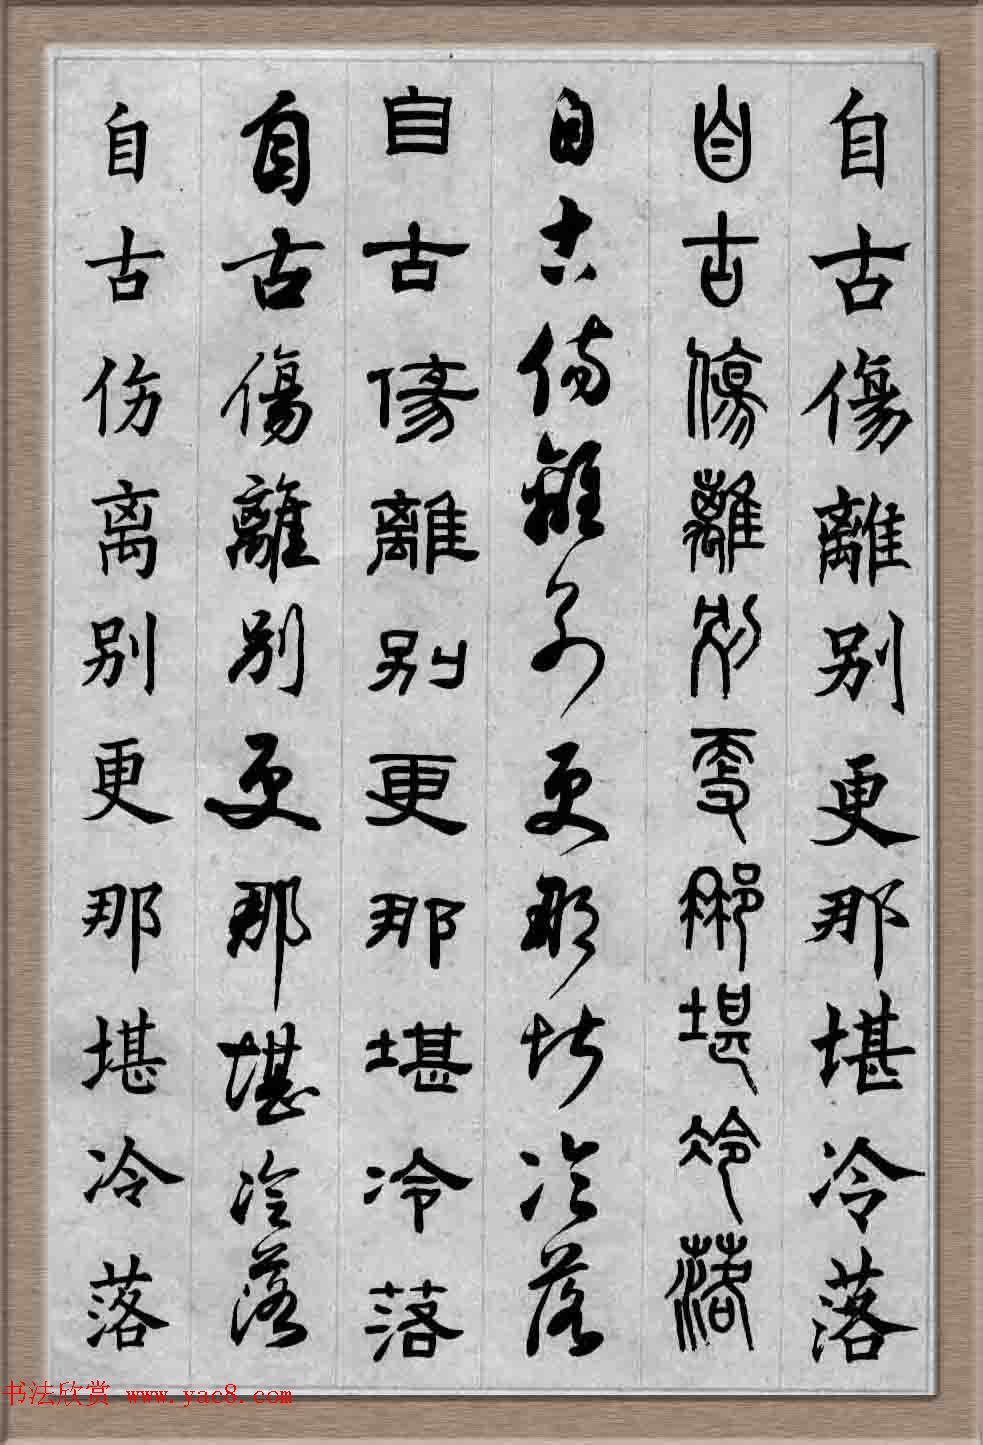 自古傷離别更那堪冷落
自古傷離别更那堪冷落
自古傷離别更那堪冷落
自古傷離别更那堪冷落
自古傷離别更那堪冷落
自古伤离别更那堪冷落
书法欣赏 www.yac8.com